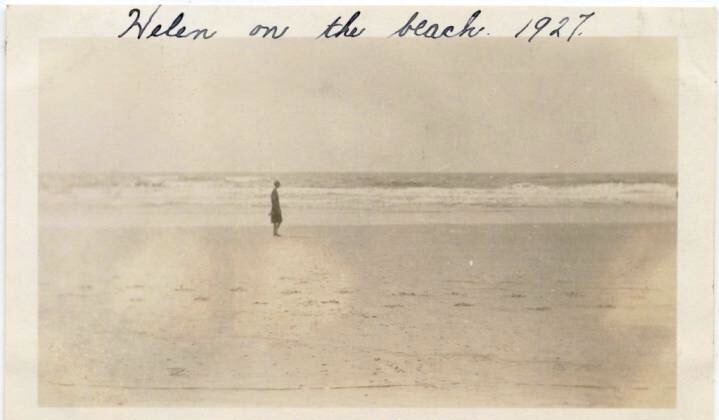 Helen on the beach. 1927.